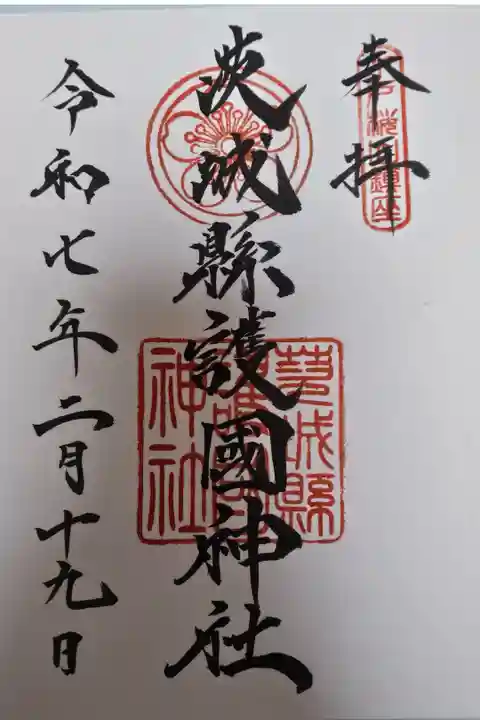 奉拝
桜山鎮座
茨城縣護國神社
茨城縣
護國
神社
令和七年二月十九日